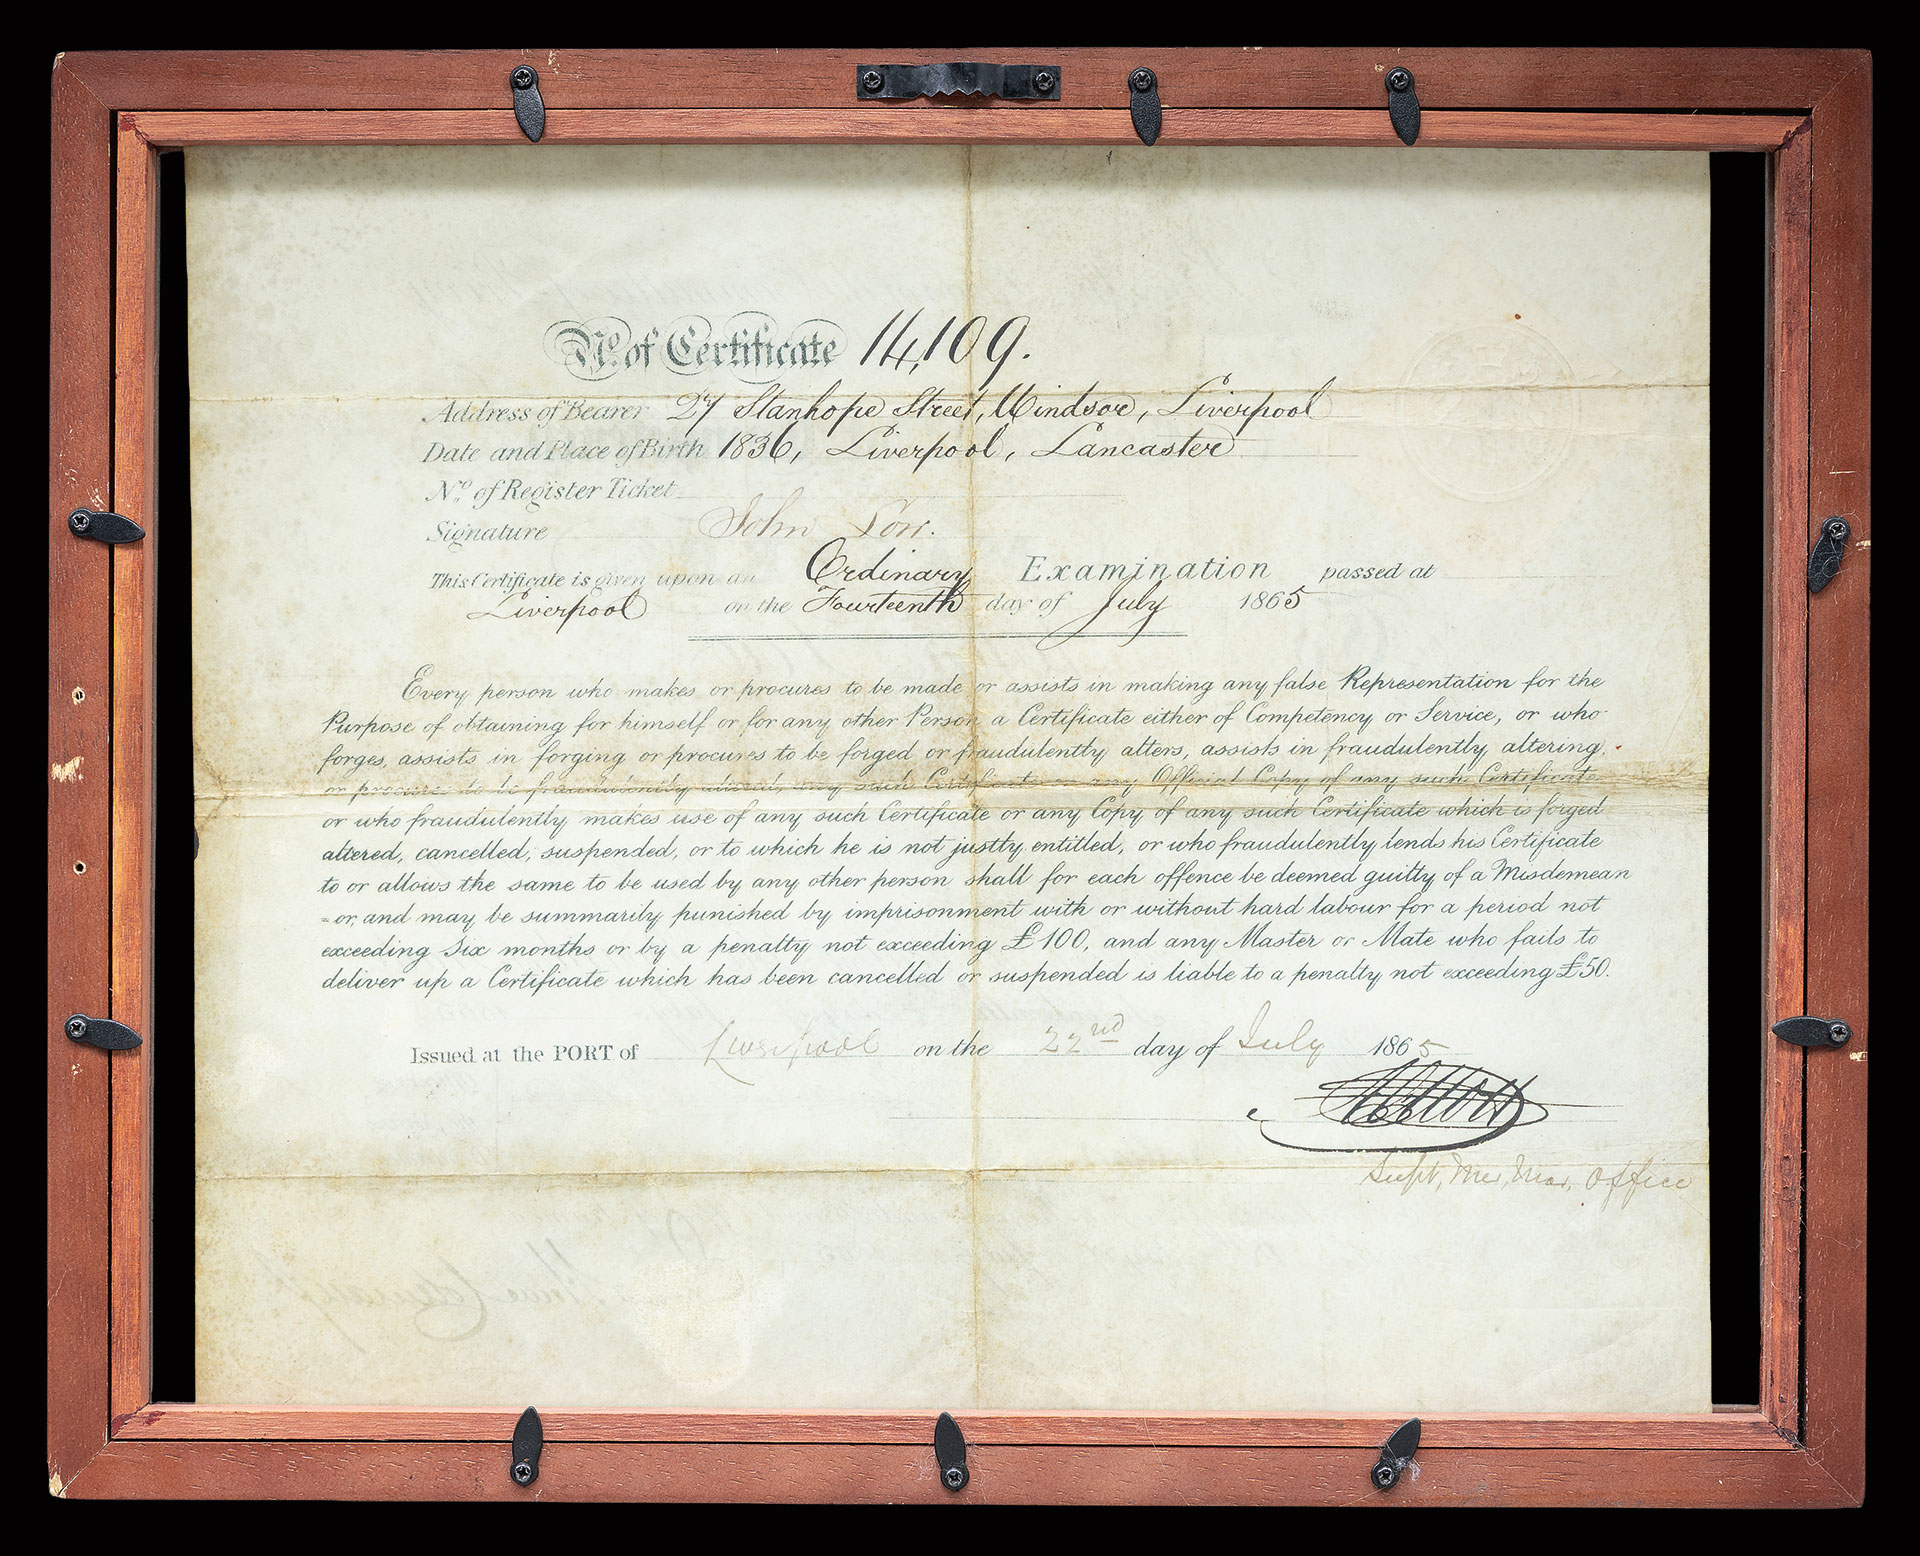 No. of Certificate 14,109.
Address of Bearer 27 Stanhope Street, Windsor, Liverpool
Date and Place of Birth 1836, Liverpool, Lancaster
No. of Register Ticket
Signature John
This Certificate is given upon an Ordinary Examination passed at
Liverpool on the Fourteenth day of July 1865
Every person who makes or procures to be made or assists in making any false Representation for the
Purpose of obtaining for himself or for any other Person a Certificate either of Competency or Service, or who
forges, assists in forging or procures to be forged or fraudulently alters, assists in fraudulently altering,
or procures to be fraudulently altered, any such Certificate or any Official Copy of any such Certificate
or who fraudulently makes use of any such Certificate or any Copy of any such Certificate which is forged
altered, cancelled, suspended, or to which he is not justly entitled, or who fraudulently lends his Certificate
to or allows the same to be used by any other person shall for each offence be deemed guilty of a Misdemean
=or, and may be summarily punished by imprisonment with or without hard labour for a period not
exceeding Six months or by a penalty not exceeding £100, and any Master or Mate who fails to
deliver up a Certificate which has been cancelled or suspended is liable to a penalty not exceeding £50.
Issued at the PORT of Liverpool on the 22nd day of July 1865
Supt, Mer, Mar, Office